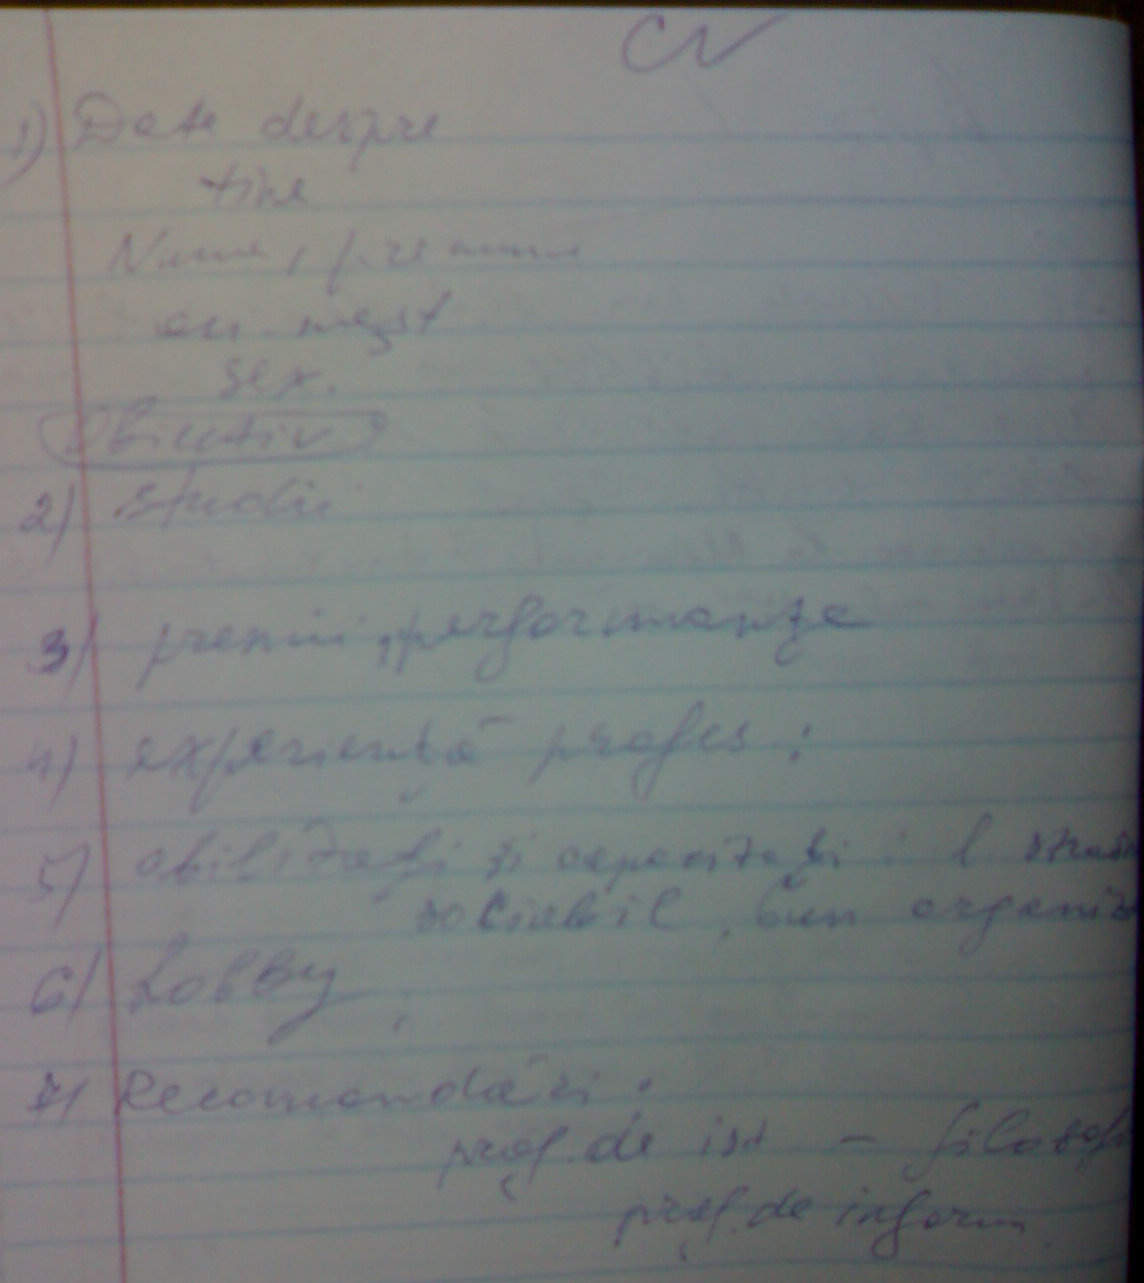 CV
1) Date despre
tine
Nume, prenume
an nașt
sex.
Obiectiv
2) studii
3) premii, performanțe
4) experiență profes :
5) abilități și capacități : l străi
sociabil, bun organiz
6) hobby ;
7) Recomandări :
prof. de ist - filosof
prof. de inform